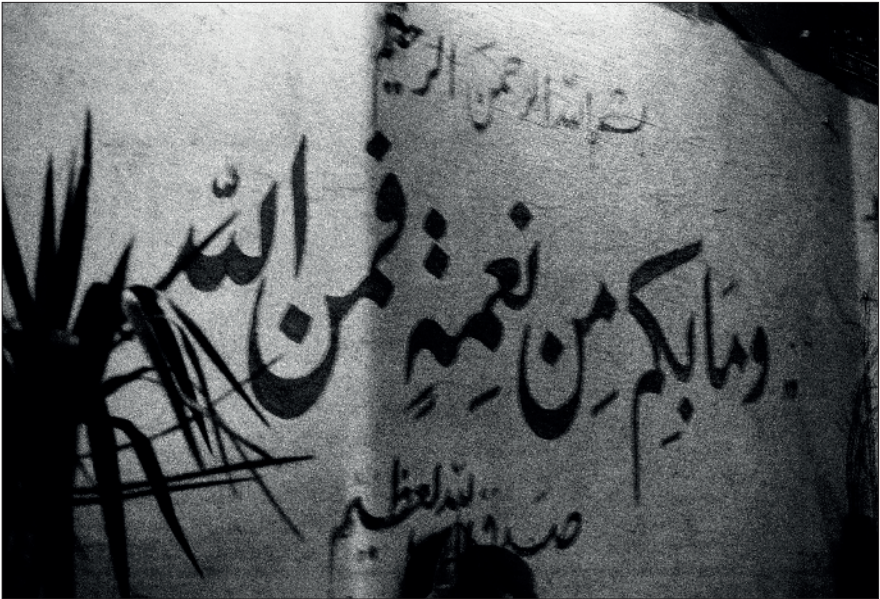 بسم الله الرحمن الرحيم
وَمَا بِكُم مِن نِعمَةٍ فَمِن اللّٰه
صَدق الله العظيم